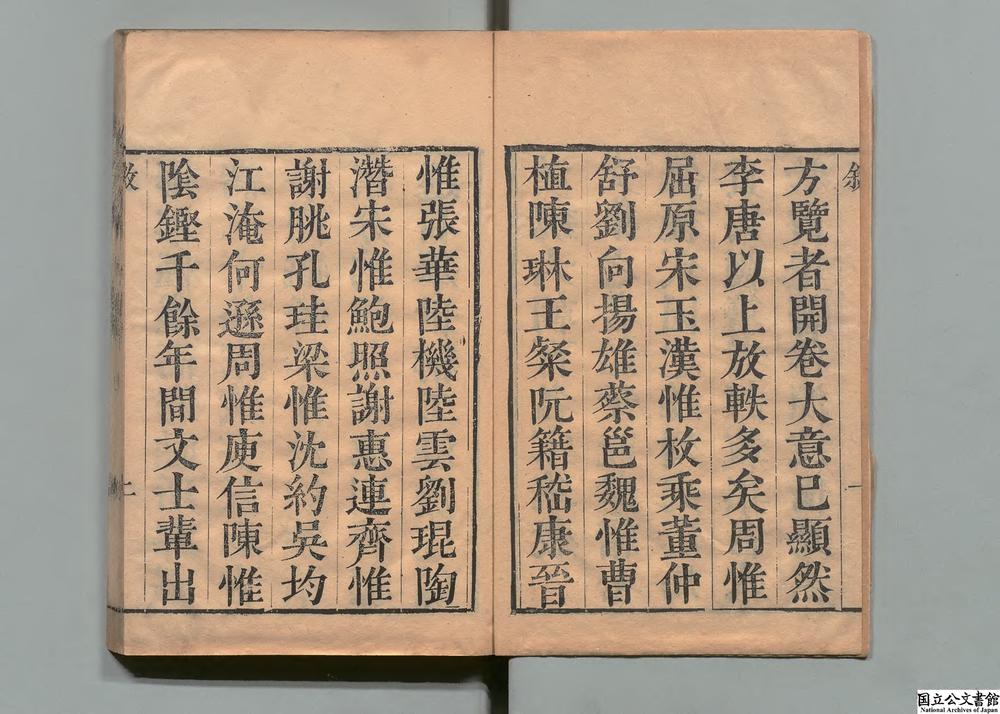 方覽者開卷大意已顯然
李唐以上放軼多矣周惟
屈原宋玉漢惟枚乘董仲
舒劉向揚雄蔡邕魏惟曹
植陳琳王粲阮籍嵇康晉
惟張華陸機陸雲劉琨陶
潛宋惟鮑照謝惠連齊惟
謝朓孔珪梁惟沈約吳均
江淹何遜周惟庾信陳惟
陰鏗千餘年間文士輩出
国立公文書館
National Archives of Japan